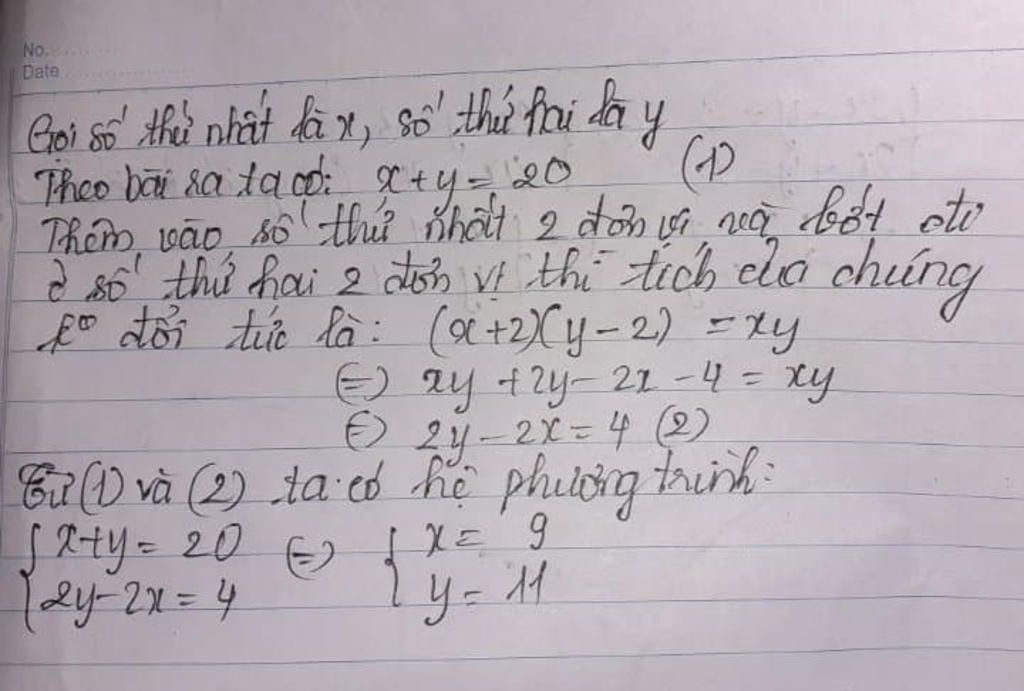 No.
Date
Gọi số thứ nhất là x, số thứ hai là y
Theo bài ra ta có: x + y = 20 (1)
Thêm vào số thứ nhất 2 đơn vị và bớt đi
ở số thứ hai 2 đơn vị thì tích của chúng
k° đổi tức là: (x+2)(y-2) = xy
⇔ xy + 2y - 2x - 4 = xy
⇔ 2y - 2x = 4 (2)
Từ (1) và (2) ta có hệ phương trình:
{ x+y = 20 ⇔ { x = 9
{ 2y-2x = 4 { y = 11